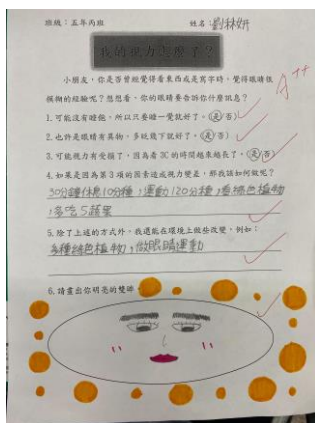 班級：五年丙班 姓名：劉林妍
我的視力怎麼了？
小朋友，你是否曾經覺得看東西或是寫字時，覺得眼睛很
模糊的經驗呢？想想看，你的眼睛要告訴你什麼訊息？
1.可能沒有睡飽，所以只要睡一覺就好了。(是/否)
2.也許是眼睛有異物，多眨幾下就好了。(是/否)
3.可能視力有受損了，因為看 3C 的時間越來越長了。(是/否)
4.如果是因為第 3 項的因素造成視力變差，那我該如何做呢？
30分鐘休息10分種；運動120分種；看綠色植物
；多吃5蔬果
5.除了上述的方式外，我還能在環境上做些改變，例如：
多種綠色植物；做眼睛運動
6.請畫出你明亮的雙眸。
A++